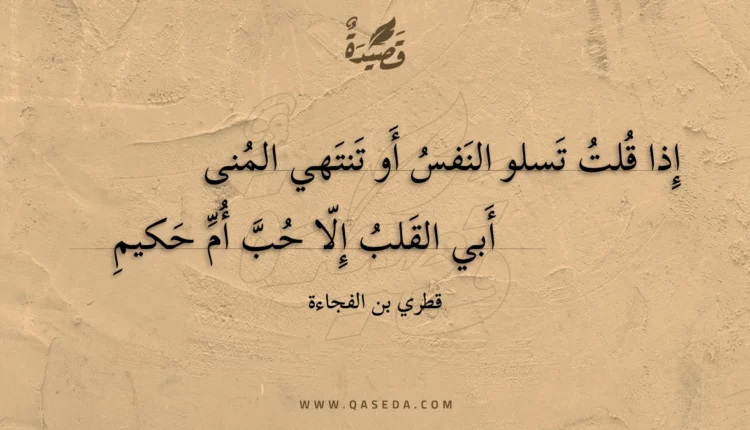 قَصِيدَةٌ
إِذا قُلتُ تَسلو النَفسُ أَو تَنتَهي المُنى
أَبي القَلبُ إِلّا حُبَّ أُمِّ حَكيمِ
قطري بن الفجاءة
WWW.QASEDA.COM